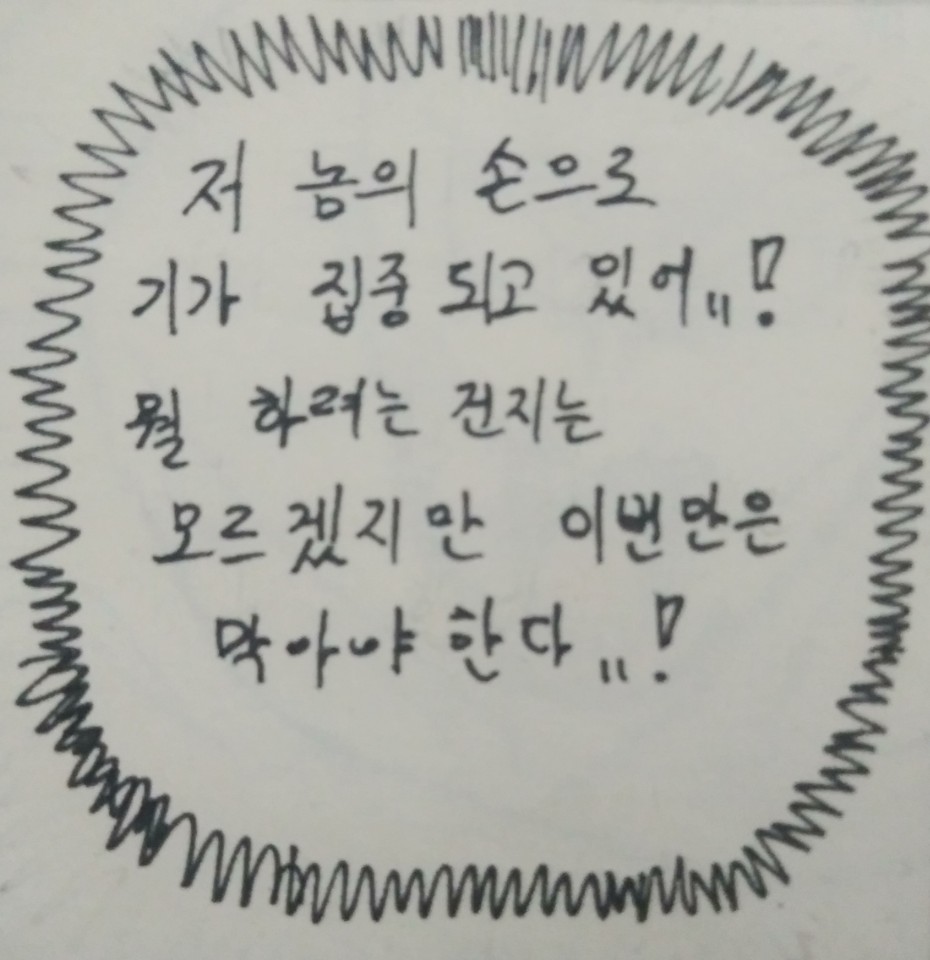 저 놈의 손으로
기가 집중 되고 있어,,!
뭘 하려는 건지는
모르겠지만 이번만은
막아야 한다,,!